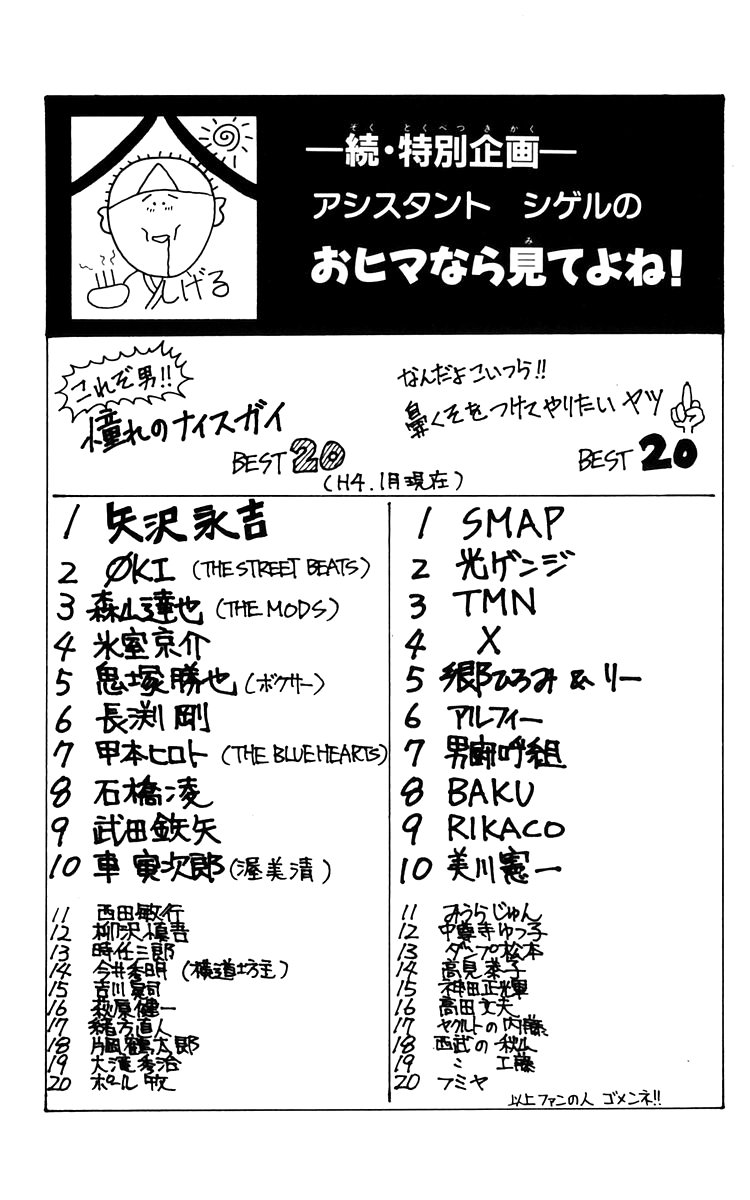 ―続・特別企画―
アシスタント シゲルの
おヒマなら見てよね！
しげる
これぞ男!!
憧れのナイスガイ
BEST 20
なんだよこいつら!!
鼻くそをつけてやりたいヤツ
BEST 20
(H4.1月現在)
1 矢沢永吉
2 ØKI (THE STREET BEATS)
3 森山達也 (THE MODS)
4 氷室京介
5 鬼塚勝也 (ボクサー)
6 長渕剛
7 甲本ヒロト (THE BLUE HEARTS)
8 石橋凌
9 武田鉄矢
10 車寅次郎 (渥美清)
11 西田敏行
12 柳沢慎吾
13 時任三郎
14 今井秀明 (横道坊主)
15 吉川晃司
16 萩原健一
17 緒方直人
18 片岡鶴太郎
19 大滝秀治
20 ポール牧
1 SMAP
2 光ゲンジ
3 TMN
4 X
5 郷ひろみ & リー
6 アルフィー
7 男闘呼組
8 BAKU
9 RIKACO
10 美川憲一
11 みうらじゅん
12 中尊寺ゆつ子
13 ダンプ松本
14 高見恭子
15 神田正輝
16 高田文夫
17 ヤクルトの内藤
18 西武の秋山
19 〃 工藤
20 フミヤ
以上ファンの人 ゴメンネ!!